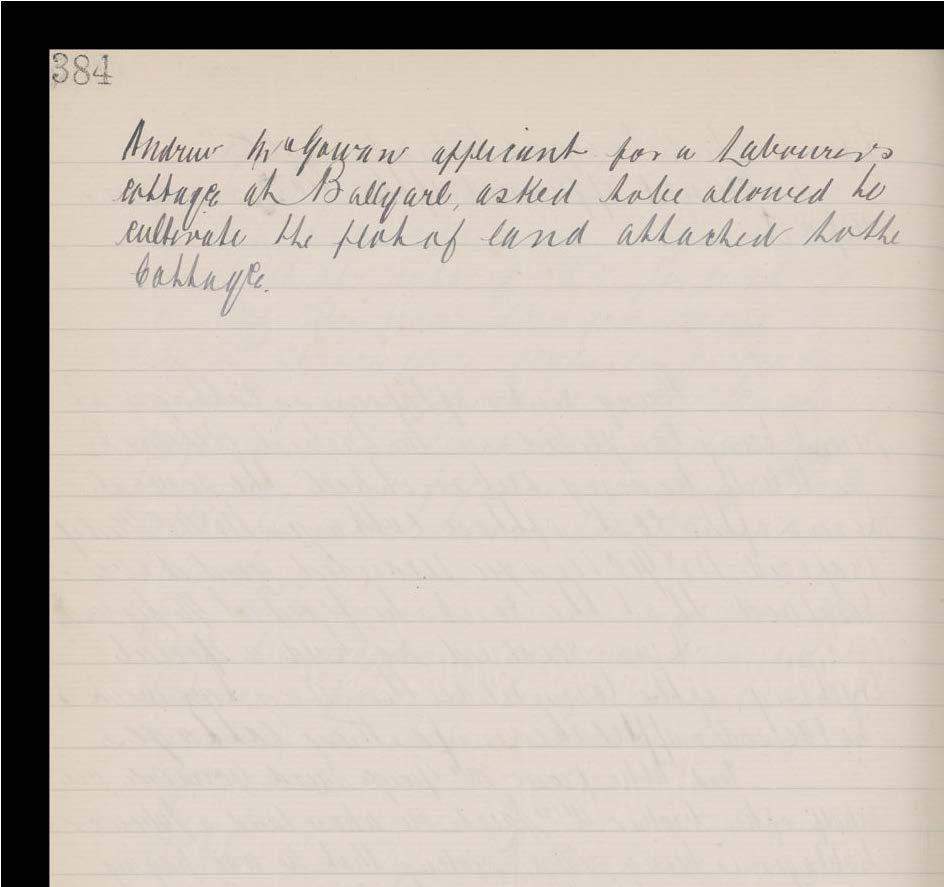 384
Andrew McGowan applicant for a Labourers
cottage at Ballyarl, asked to be allowed to
cultivate the plot of land attached to the
Cottage.